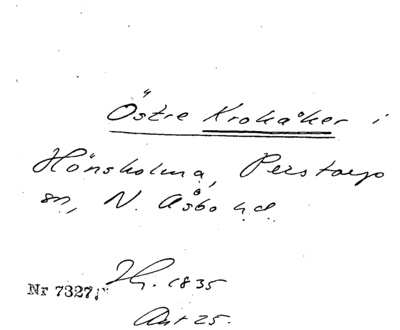 Östre Krokåker i
Hönsholma, Perstorp
sn, N. Åsbo hd
Nr 7327; Hg. 1835
Akt 25.